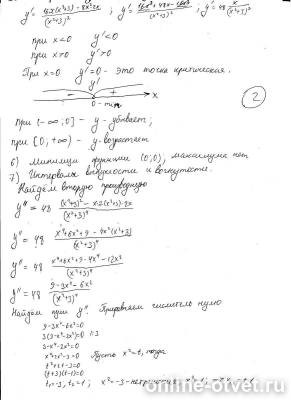 y' = (16x(x²+3) - 8x²·2x)/(x²+3)² ; y' = (16x³+48x-16x³)/(x²+3)² ; y' = 48 x/(x²+3)²
при x<0 y'<0
при x>0 y'>0
При x=0 y'=0 - это точка критическая.
y'
- + x
0 - min
2
при (-∞; 0] - y - убывает;
при [0; +∞) - y возрастает
6) Минимум функции (0;0), максимума нет
7) Интервалы выпуклости и вогнутости.
Найдём вторую производную
y'' = 48 ((x²+3)² - x·2(x²+3)·2x)/(x²+3)⁴
y'' = 48 (x⁴+6x²+9 - 4x²(x²+3))/(x²+3)⁴
y'' = 48 (x⁴+6x²+9-4x⁴-12x²)/(x²+3)⁴
y'' = 48 (9-3x⁴-6x²)/(x²+3)⁴
Найдём нули y''. Приравняем числитель нулю
9-3x⁴-6x²=0
3(3-x⁴-2x²)=0 |:3
3-x⁴-2x²=0
x⁴+2x²-3=0 Пусть x²=t, тогда
t²+2t-3=0
(t+3)(t-1)=0
t₁=-3, t₂=1; x²=-3 - x²=1;
online-otvet.ru